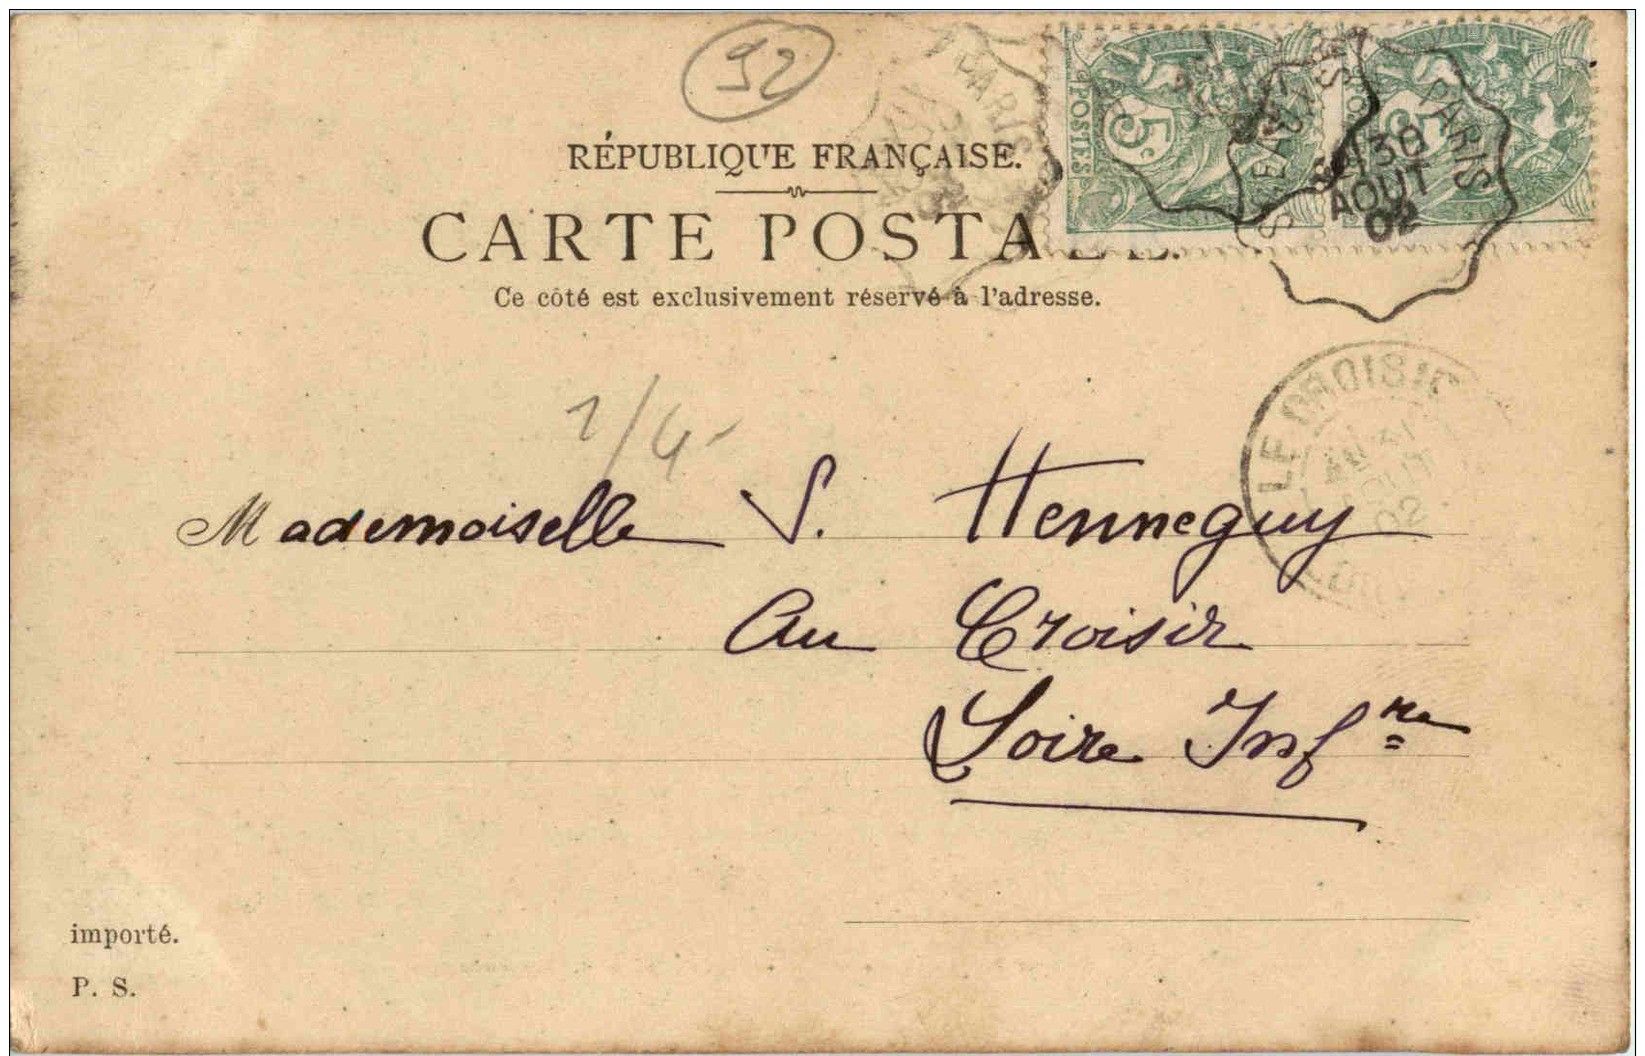 92
RÉPUBLIQUE FRANÇAISE.
CARTE POSTA
Ce côté est exclusivement réservé à l'adresse.
POSTES
5c
PARIS
SCEAUX
PARIS
30
AOUT
02
LE CROISIC
02
1/4-
Mademoiselle S. Henneguy
Au Croisic
Loire Infre
importé.
P. S.